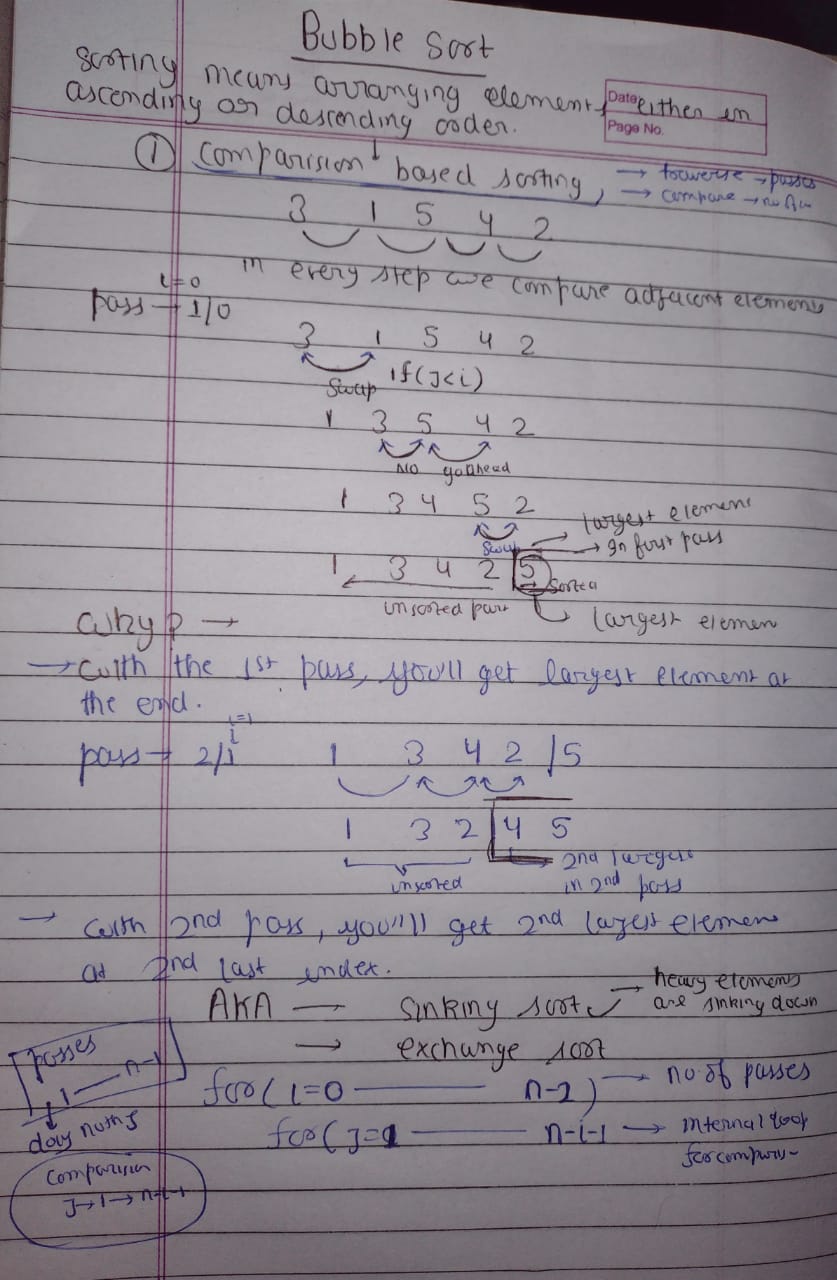 Bubble Sort
Sorting means arranging elements either in
Date
Page No.
ascending or descending order.
① Comparision based sorting
→ traverse → passes
→ compare →
3 1 5 4 2
in every step we compare adjacent elements
i=0
pass → 1/0
3 1 5 4 2
Swap if(J<i)
1 3 5 4 2
NO go ahead
1 3 4 5 2
Swap
→ largest elemen
→ In first pass
1 3 4 2 5
→ Sorted
unsorted part
largest elemen
Why? →
→ with the 1st pass, you'll get largest element at
the end.
i=1
pass → 2/1
1 3 4 2 | 5
1 3 2 4 5
unsorted
2nd largest
in 2nd pass
→ with 2nd pass, you'll get 2nd lagest elemen
at 2nd last index.
AKA → sinking sort
→ heavy elements
are sinking down
→ exchange sort
passes
1 — n-1
for( i=0 — n-2) → no. of passes
for( J=1 — n-i-1 → internal loop
for compari-
Comparision
J→1→n-i-1